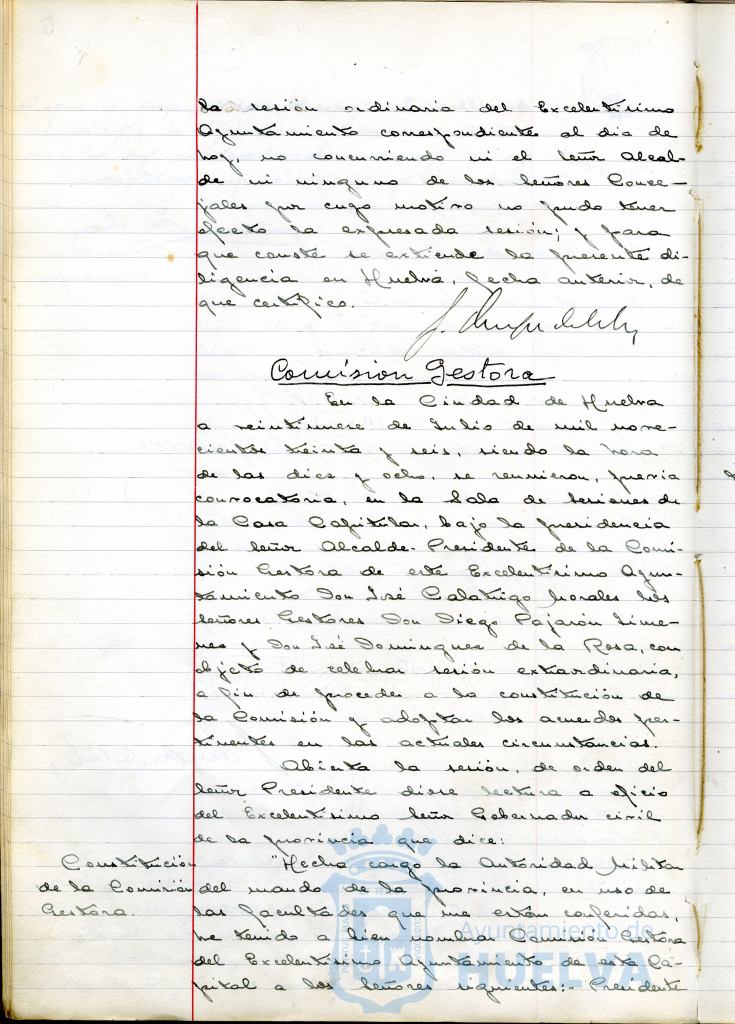 la sesión ordinaria del Excelentísimo
Ayuntamiento correspondiente al dia de
hoy, no concurriendo ni el Señor Alcal-
de ni ninguno de los Señores Conce-
jales por cuyo motivo no pudo tener
efecto la expresada sesión; y para
que conste se extiende la presente di-
ligencia en Huelva, fecha anterior, de
que certifico.
Comisión Gestora
En la Ciudad de Huelva
a veintinueve de Julio de mil nove-
cientos treinta y seis, siendo la hora
de las diez y ocho, se reunieron, previa
convocatoria, en la Sala de Sesiones de
la Casa Capitular, bajo la presidencia
del Señor Alcalde-Presidente de la Comi-
sión Gestora de este Excelentísimo Ayun-
tamiento Don José Calatrigo Morales los
Señores Gestores Don Diego Pajarón Jime-
nez y Don José Dominguez de la Rosa, con
objeto de celebrar sesión extraordinaria,
a fin de proceder a la constitución de
la Comisión y adoptar los acuerdos per-
tinentes en las actuales circunstancias.
Abierta la sesión, de orden del
Señor Presidente dióse lectura a oficio
del Excelentísimo Señor Gobernador civil
de la provincia que dice:
Constitución
de la Comisión
Gestora.
"Hecha cargo la Autoridad Militar
del mando de la provincia, en uso de
las facultades que me están conferidas,
he tenido a bien nombrar Comisión Gestora
del Excelentísimo Ayuntamiento de esta Ca-
pital a los Señores siguientes:- Presidente
Ayuntamiento de
HUELVA